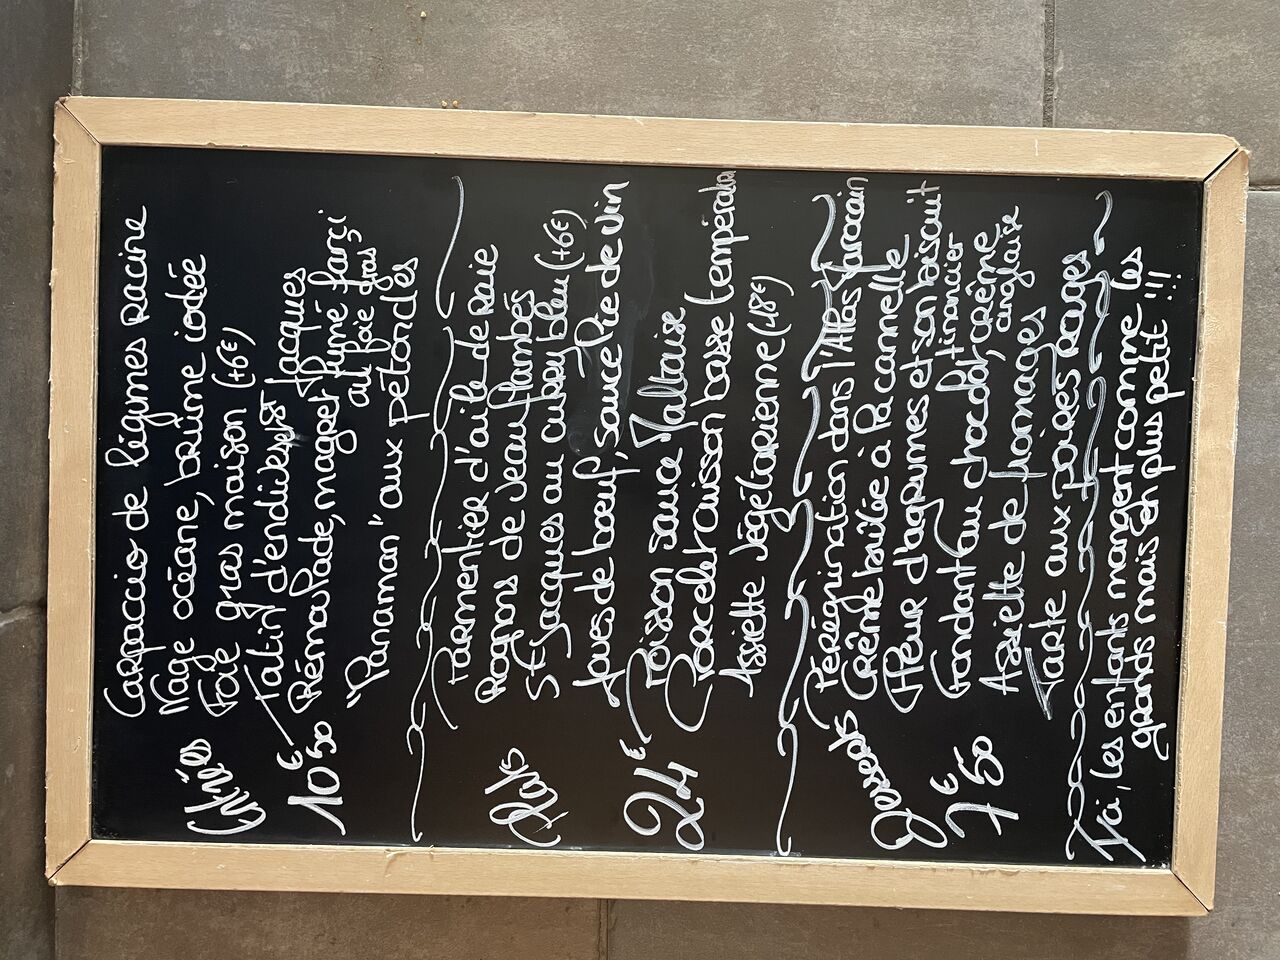 Entrées
10€50
Carpaccio de légumes racine
Nage océane, brume iodée
Foie gras maison (+6€)
Tatin d'endives St Jacques
Rémoulade, magret fumé farçi
au foie gras
"Panaman" aux pétoncles
Plats
24€
Parmentier d'aile de raie
Rognons de veau flambés
St Jacques au beurre bleu (+6€)
Joues de bœuf, sauce lie de vin
Poisson sauce Maltaise
Porcelet cuisson basse température
Assiette végétarienne (18€)
Desserts
7€50
Pérégrination dans l'Atlas marocain
Crème brûlée à la cannelle
Fleur d'agrumes et son biscuit
financier
Fondant au chocolat, crème
anglaise
Assiette de fromages
Tarte aux poires rouges
Ici, les enfants mangent comme les
grands mais en plus petit !!!